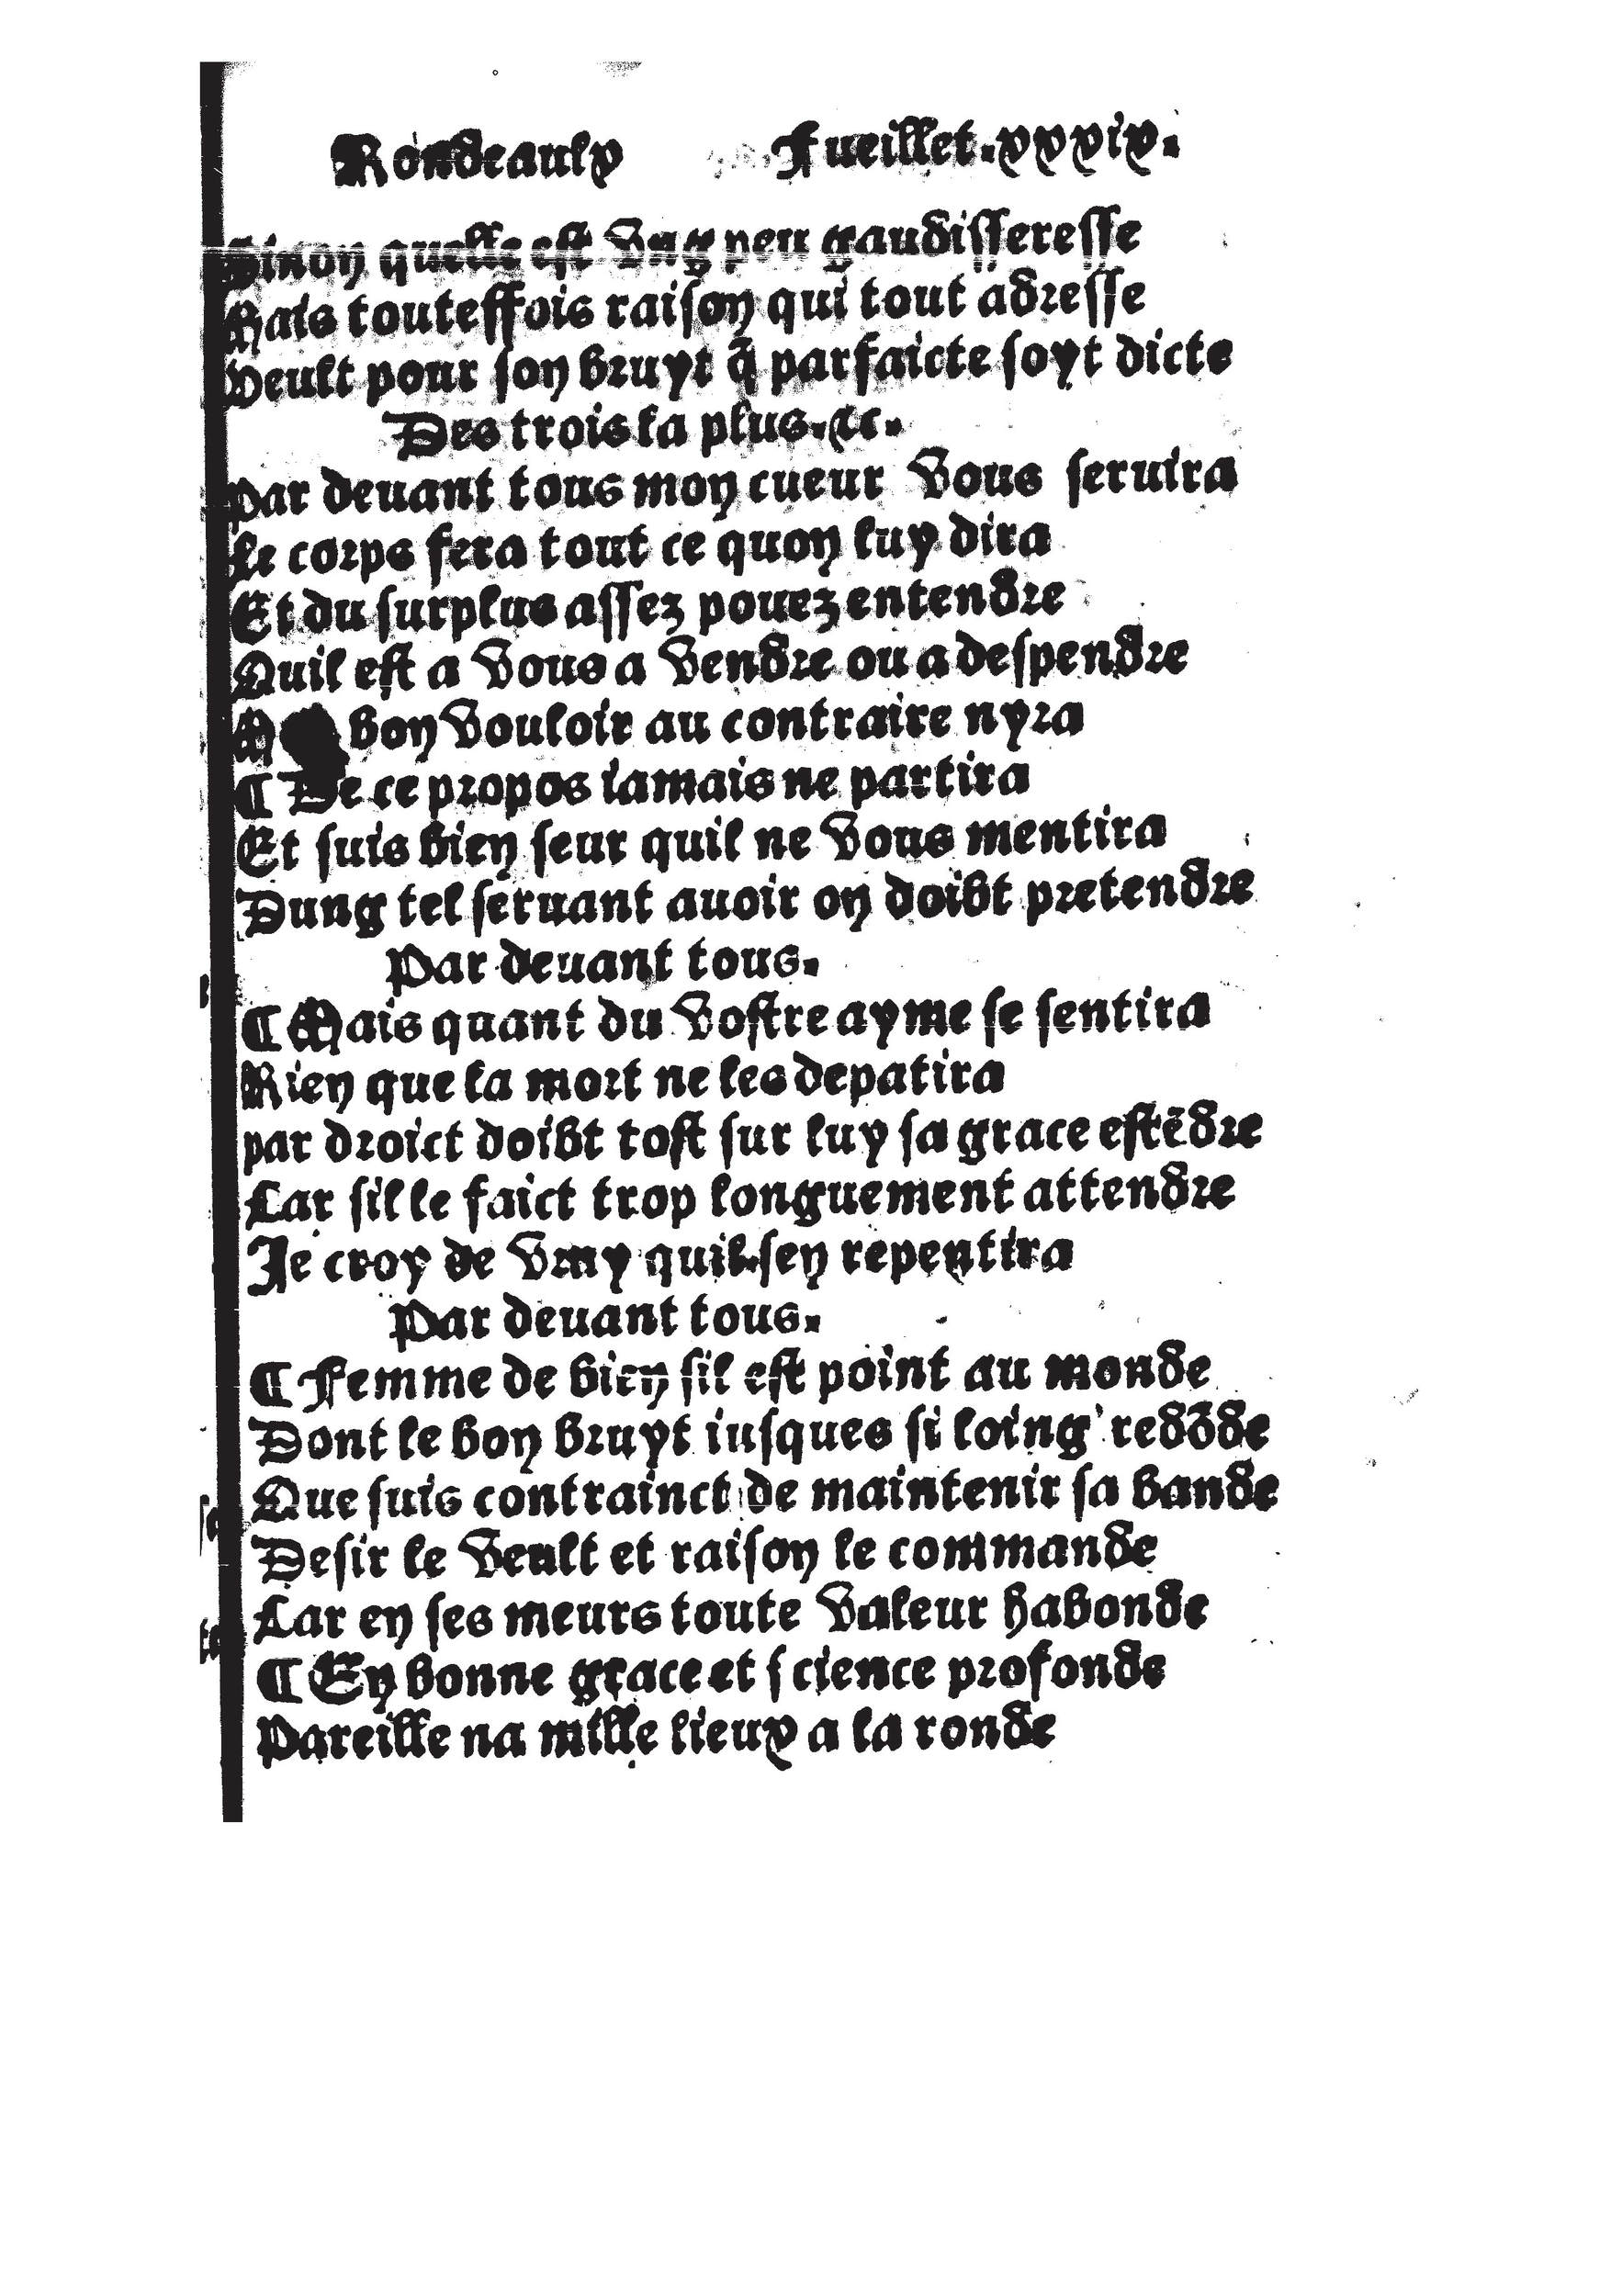 Rondeaulx Fueillet.xxxix.
Sinon quelle est vng peu gaudisseresse
Mais touteffois raison qui tout adresse
Veult pour son bruyt q̃ parfaicte soyt dicte
Des trois la plus.⁊c.
Par deuant tous mon cueur vous seruira
Le corps fera tout ce quon luy dira
Et du surplus assez pouez entendre
Quil est a vous a vendre ou a despendre
bon vouloir au contraire nyra
¶ De ce propos iamais ne partira
Et suis bien seur quil ne vous mentira
Dung tel seruant auoir on doibt pretendre
Par deuant tous.
¶ Mais quant du vostre ayme se sentira
Rien que la mort ne les depatira
par droict doibt tost sur luy sa grace estẽdre
Car sil le faict trop longuement attendre
Je croy de vray quil sen repentira
Par deuant tous.
¶ Femme de bien sil est point au monde
Dont le bon bruyt iusques si loing redõde
Que suis contrainct de maintenir sa bande
Desir le veult et raison le commande
Car en ses meurs toute valeur habonde
¶ En bonne grace et science profonde
Pareille na mille lieux a la ronde